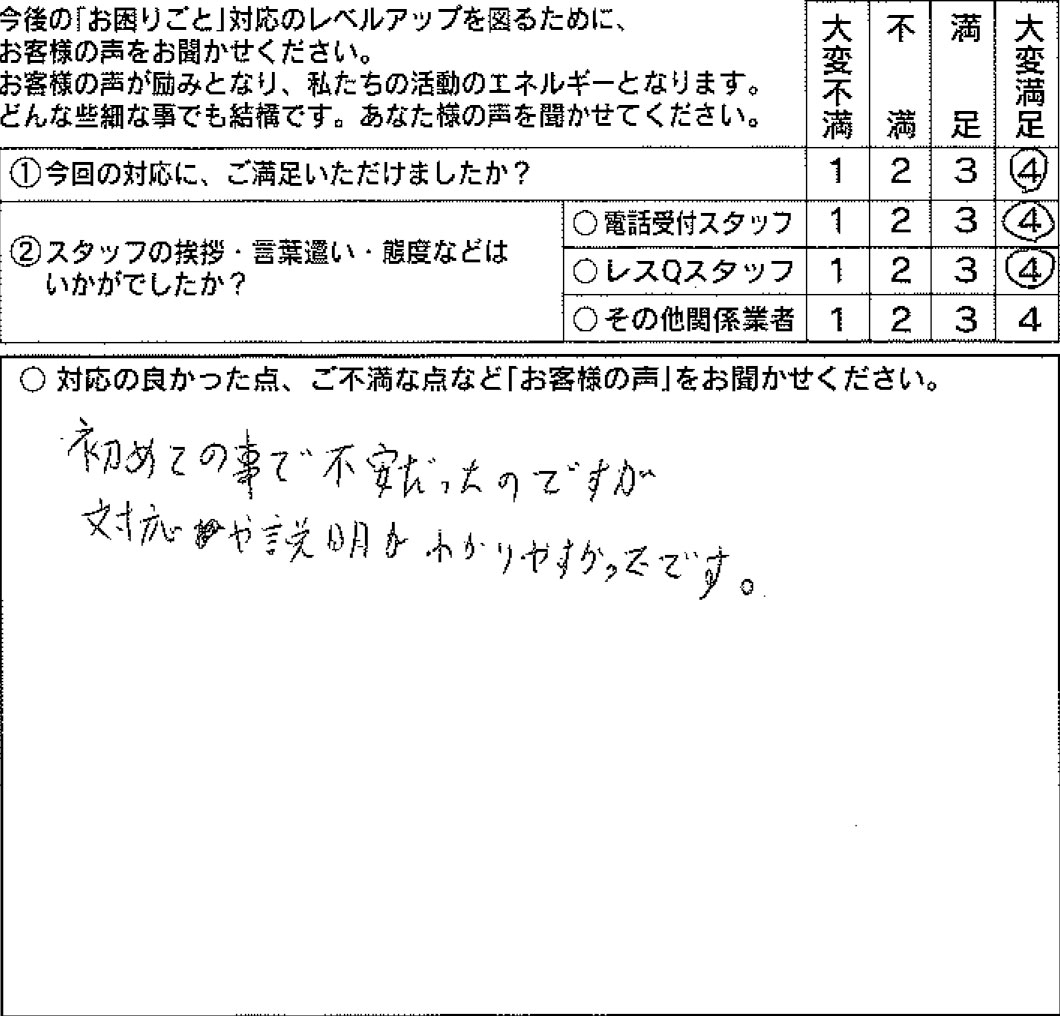 今後の「お困りごと」対応のレベルアップを図るために、
お客様の声をお聞かせください。
お客様の声が励みとなり、私たちの活動のエネルギーとなります。
どんな些細な事でも結構です。あなた様の声を聞かせてください。
大変不満 不満 満足 大変満足
①今回の対応に、ご満足いただけましたか? 1 2 3 4
②スタッフの挨拶・言葉遣い・態度などは
いかがでしたか?
○電話受付スタッフ 1 2 3 4
○レスQスタッフ 1 2 3 4
○その他関係業者 1 2 3 4
○ 対応の良かった点、ご不満な点など「お客様の声」をお聞かせください。
初めての事で不安だったのですが
対応や説明がわかりやすかったです。